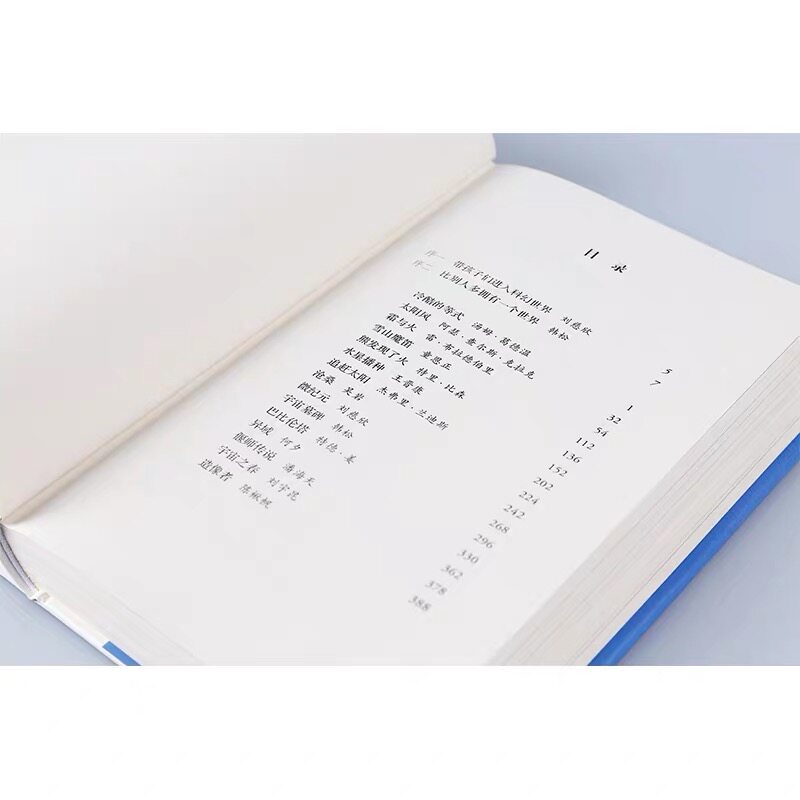 目 录
序一 带孩子们进入科幻世界 刘慈欣 5
序二 比别人多拥有一个世界 韩松 7
冷酷的等式 汤姆·葛德温 1
太阳风 阿瑟·查尔斯·克拉克 32
霜与火 雷·布拉德伯里 54
雪山魔笛 童恩正 112
熊发现了火 特里·比森 136
水星播种 王晋康 152
追赶太阳 杰弗里·兰迪斯 202
沧桑 吴岩 224
微纪元 刘慈欣 242
宇宙墓碑 韩松 268
巴比伦塔 特德·姜 296
异域 何夕 330
偃师传说 潘海天 362
宇宙之春 刘宇昆 378
造像者 陈楸帆 388